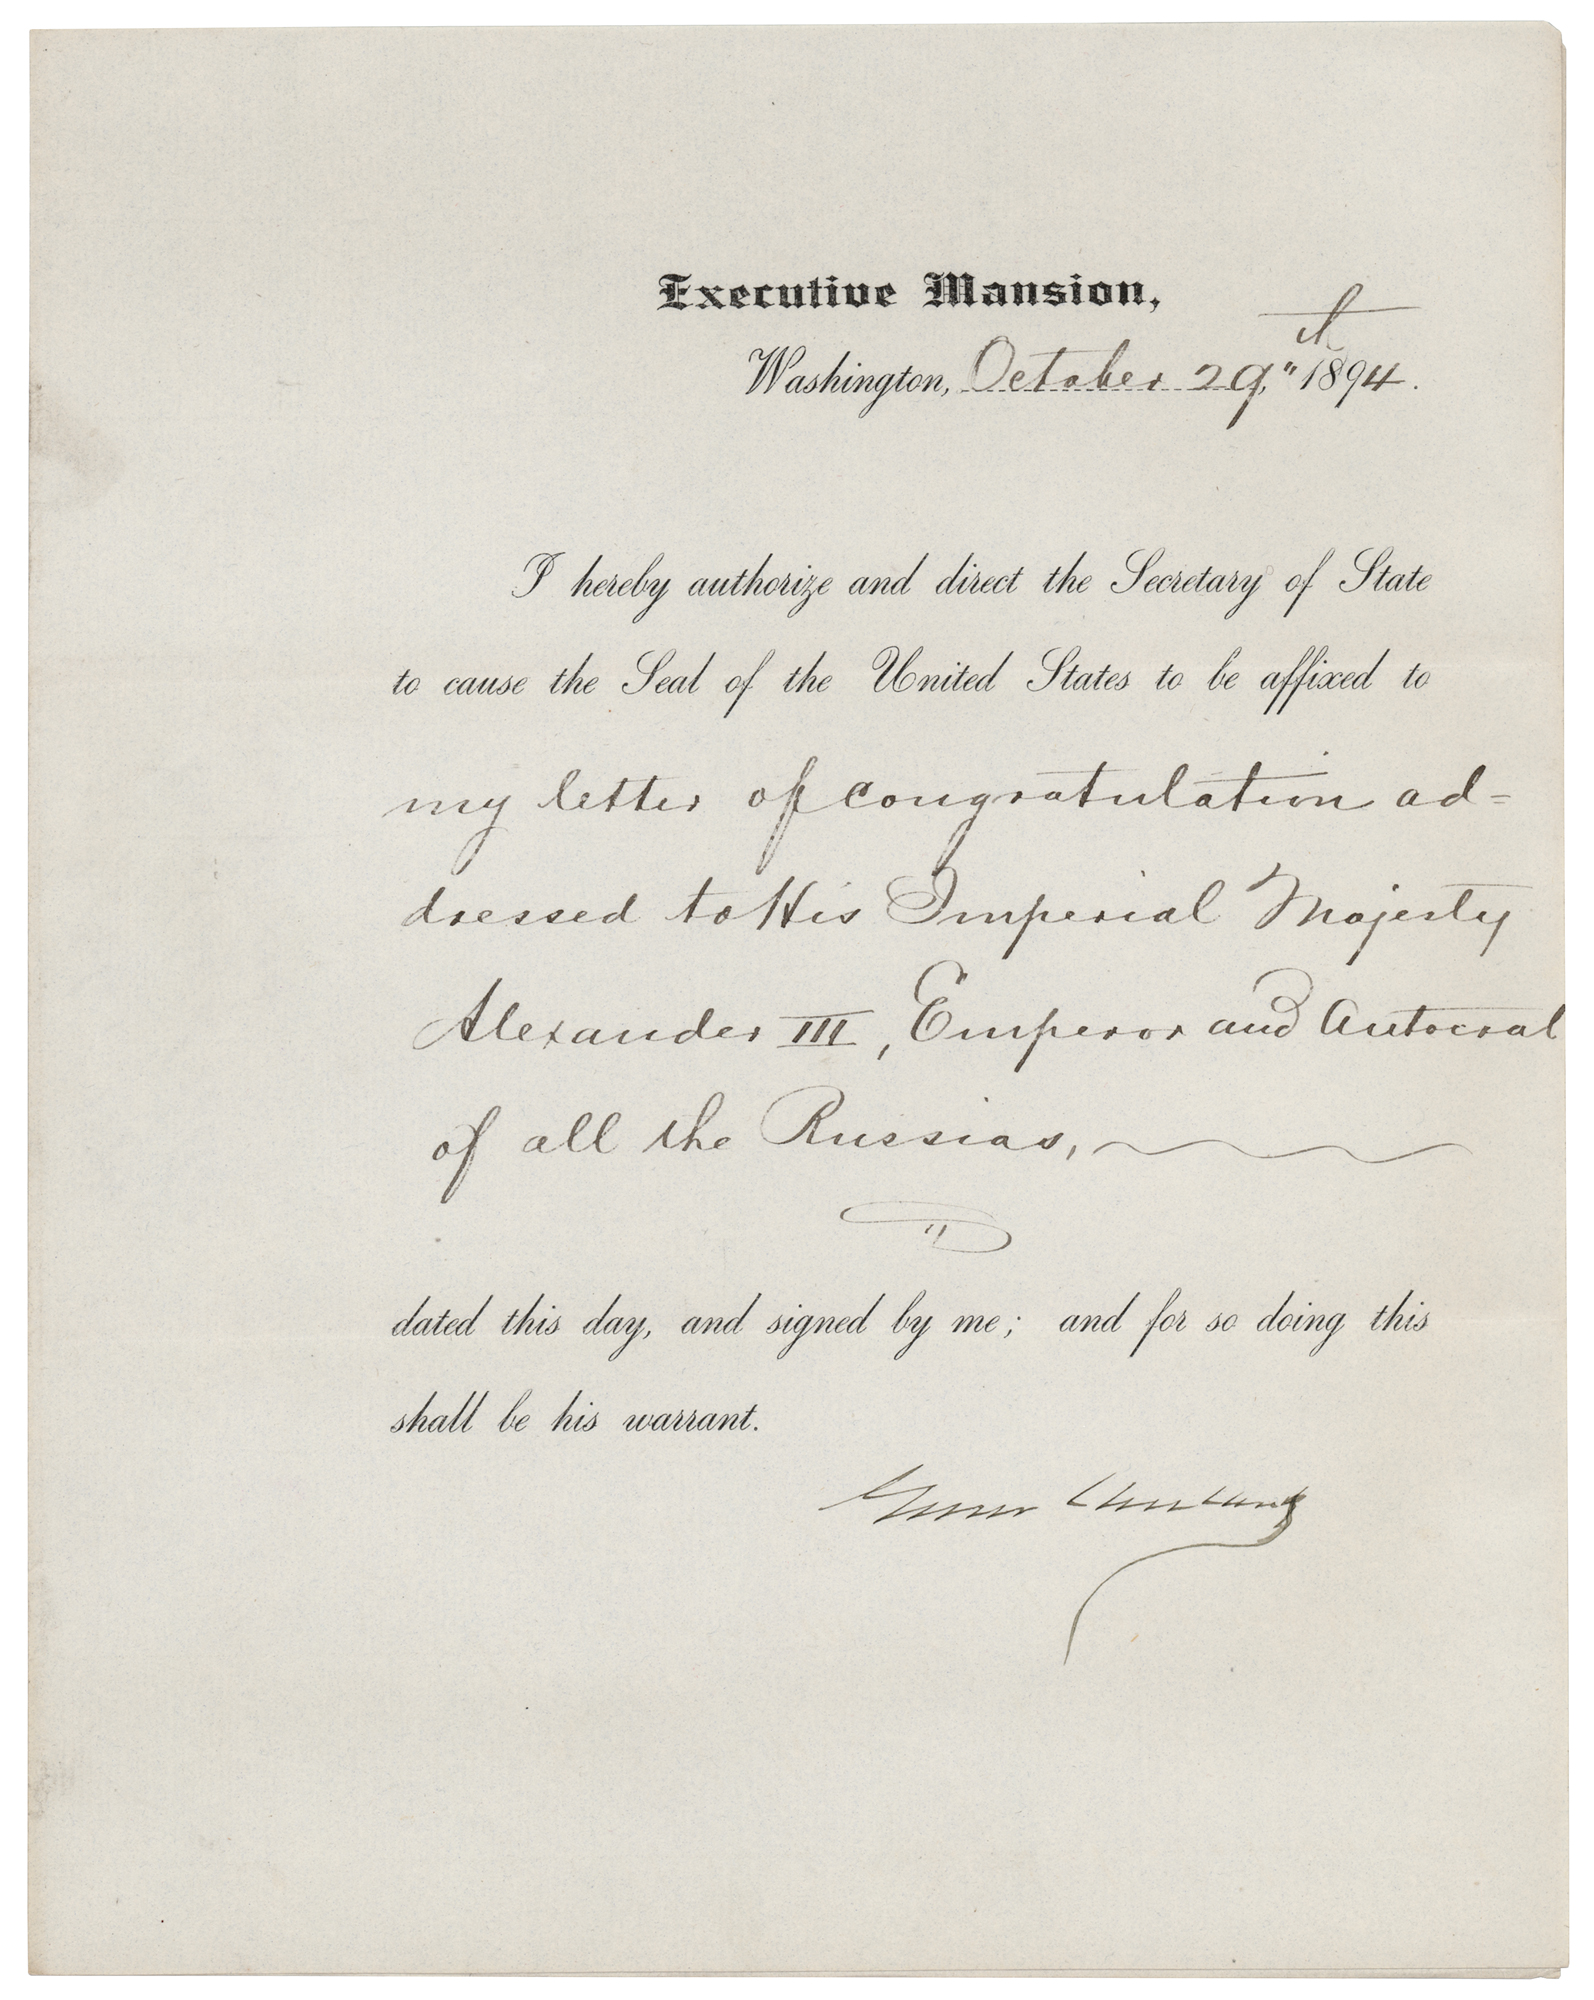 Executive Mansion,
Washington, October 29,"th 1894.
I hereby authorize and direct the Secretary of State
to cause the Seal of the United States to be affixed to
my letter of congratulation ad=
dressed to His Imperial Majesty
Alexander III, Emperor and Autocrat
of all the Russias,
dated this day, and signed by me; and for so doing this
shall be his warrant.
Grover Cleveland